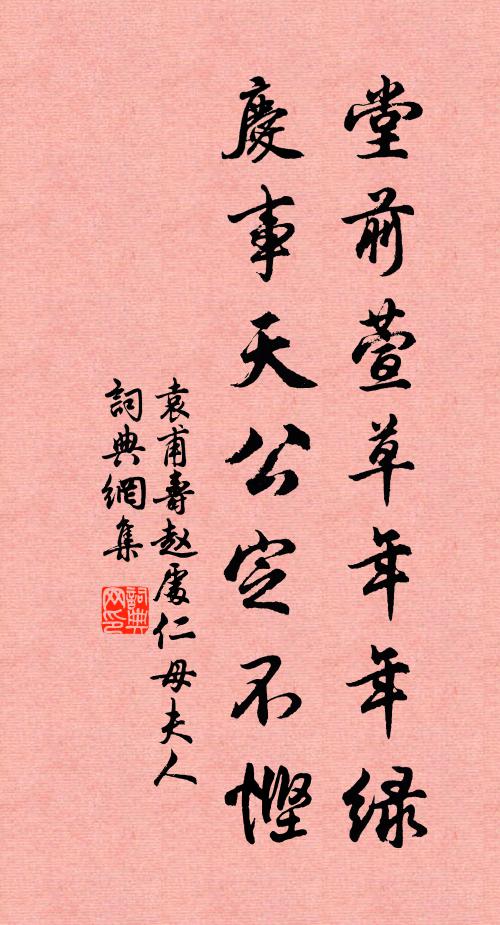 堂前萱草年年绿
慶事天公定不慳
袁甫壽赵處仁母夫人
詞典網集
詞典網印